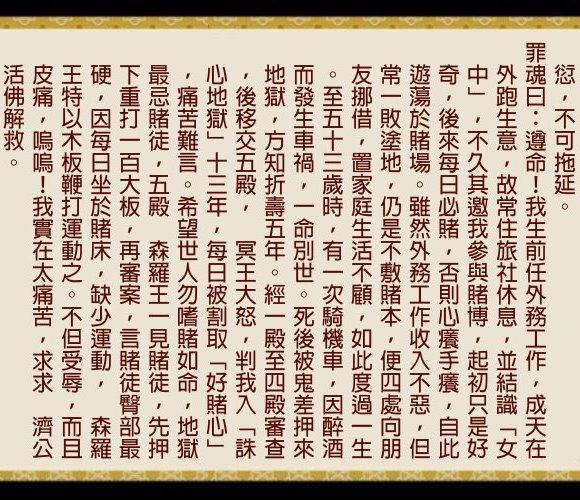 愆，不可拖延。
罪魂曰：遵命！我生前任外務工作，成天在
外跑生意，故常住旅社休息，並結識「女
中」，不久其邀我參與賭博，起初只是好
奇，後來每日必賭，否則心癢手癢，自此
遊蕩於賭場。雖然外務工作收入不惡，但
常一敗塗地，仍是不敷賭本，便四處向朋
友挪借，置家庭生活不顧，如此度過一生
。至五十三歲時，有一次騎機車，因醉酒
而發生車禍，一命別世。死後被鬼差押來
地獄，方知折壽五年。經一殿至四殿審查
，後移交五殿，　冥王大怒，判我入「誅
心地獄」十三年，每日被割取「好賭心」
，痛苦難言。希望世人勿嗜賭如命，地獄
最忌賭徒，五殿　森羅王一見賭徒，先押
下重打一百大板，再審案，言賭徒臀部最
硬，因每日坐於賭床，缺少運動，　森羅
王特以木板鞭打運動之。不但受辱，而且
皮痛，嗚嗚！我實在太痛苦，求求　濟公
活佛解救。